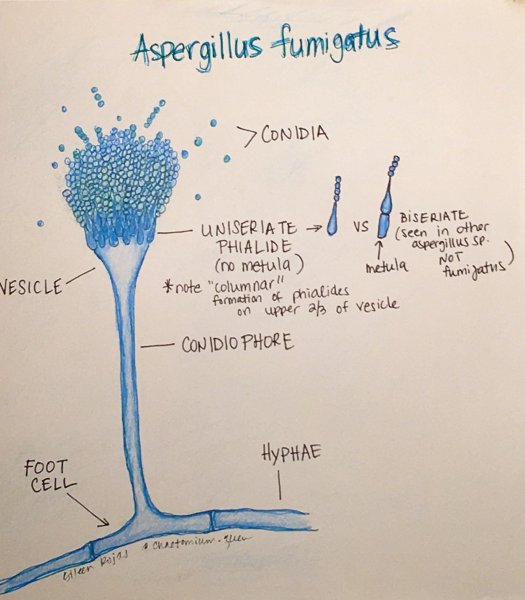 Aspergillus fumigatus
> CONIDIA
UNISERIATE
PHIALIDE
(no metula)
VS
BISERIATE
(seen in other
aspergillus sp.
NOT
fumigatus)
metula
*note "columnar"
formation of phialides
on upper 2/3 of vesicle
VESICLE
CONIDIOPHORE
HYPHAE
FOOT
CELL
Eileen Rojas @ Chaetomium.